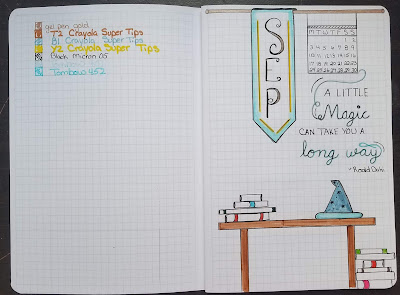 gel pen gold
72 Crayola Super Tips
81 Crayola Super Tips
Y2 Crayola Super Tips
Black Micron 05
Tombow 452
SEP
M T W T F S S
1 2
3 4 5 6 7 8 9
10 11 12 13 14 15 16
17 18 19 20 21 22 23
24 25 26 27 28 29 30
A LITTLE
Magic
CAN TAKE YOU A
long way
- Roald Dahl